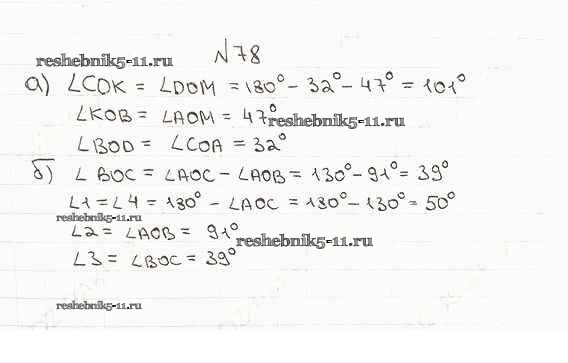 №78
reshebnik5-11.ru
а) ∠COK = ∠DOM = 180° - 32° - 47° = 101°
∠KOB = ∠AOM = 47°
reshebnik5-11.ru
∠BOD = ∠COA = 32°
б) ∠BOC = ∠AOC - ∠AOB = 130° - 91° = 39°
∠1 = ∠4 = 180° - ∠AOC = 180° - 130° = 50°
reshebnik5-11.ru
∠2 = ∠AOB = 91°
reshebnik5-11.ru
∠3 = ∠BOC = 39°
reshebnik5-11.ru